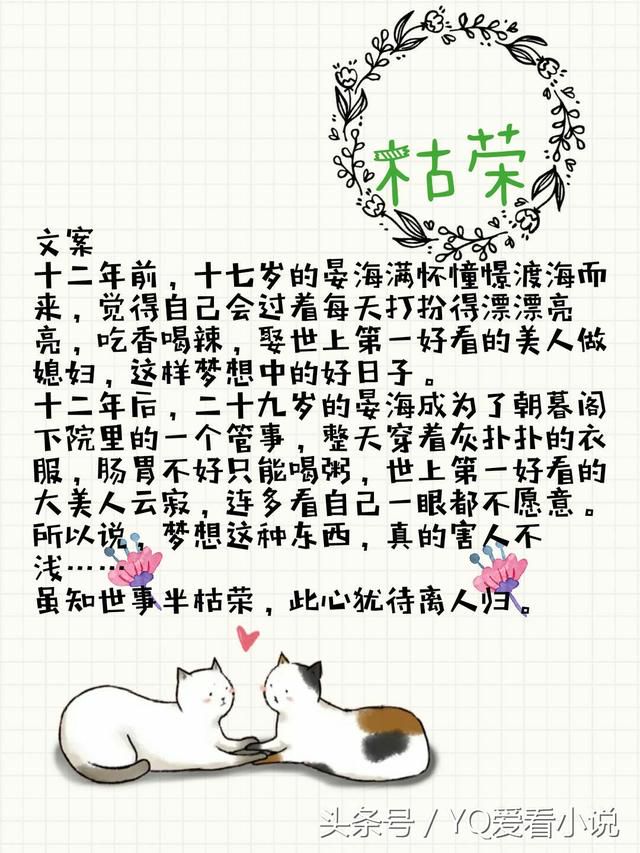 枯荣
文案
十二年前，十七岁的晏海满怀憧憬渡海而
来，觉得自己会过着每天打扮得漂漂亮
亮，吃香喝辣，娶世上第一好看的美人做
媳妇，这样梦想中的好日子。
十二年后，二十九岁的晏海成为了朝暮阁
下院里的一个管事，整天穿着灰扑扑的衣
服，肠胃不好只能喝粥，世上第一好看的
大美人云寂，连多看自己一眼都不愿意。
所以说，梦想这种东西，真的害人不
浅……
虽知世事半枯荣，此心犹待离人归。
头条号 / YQ爱看小说